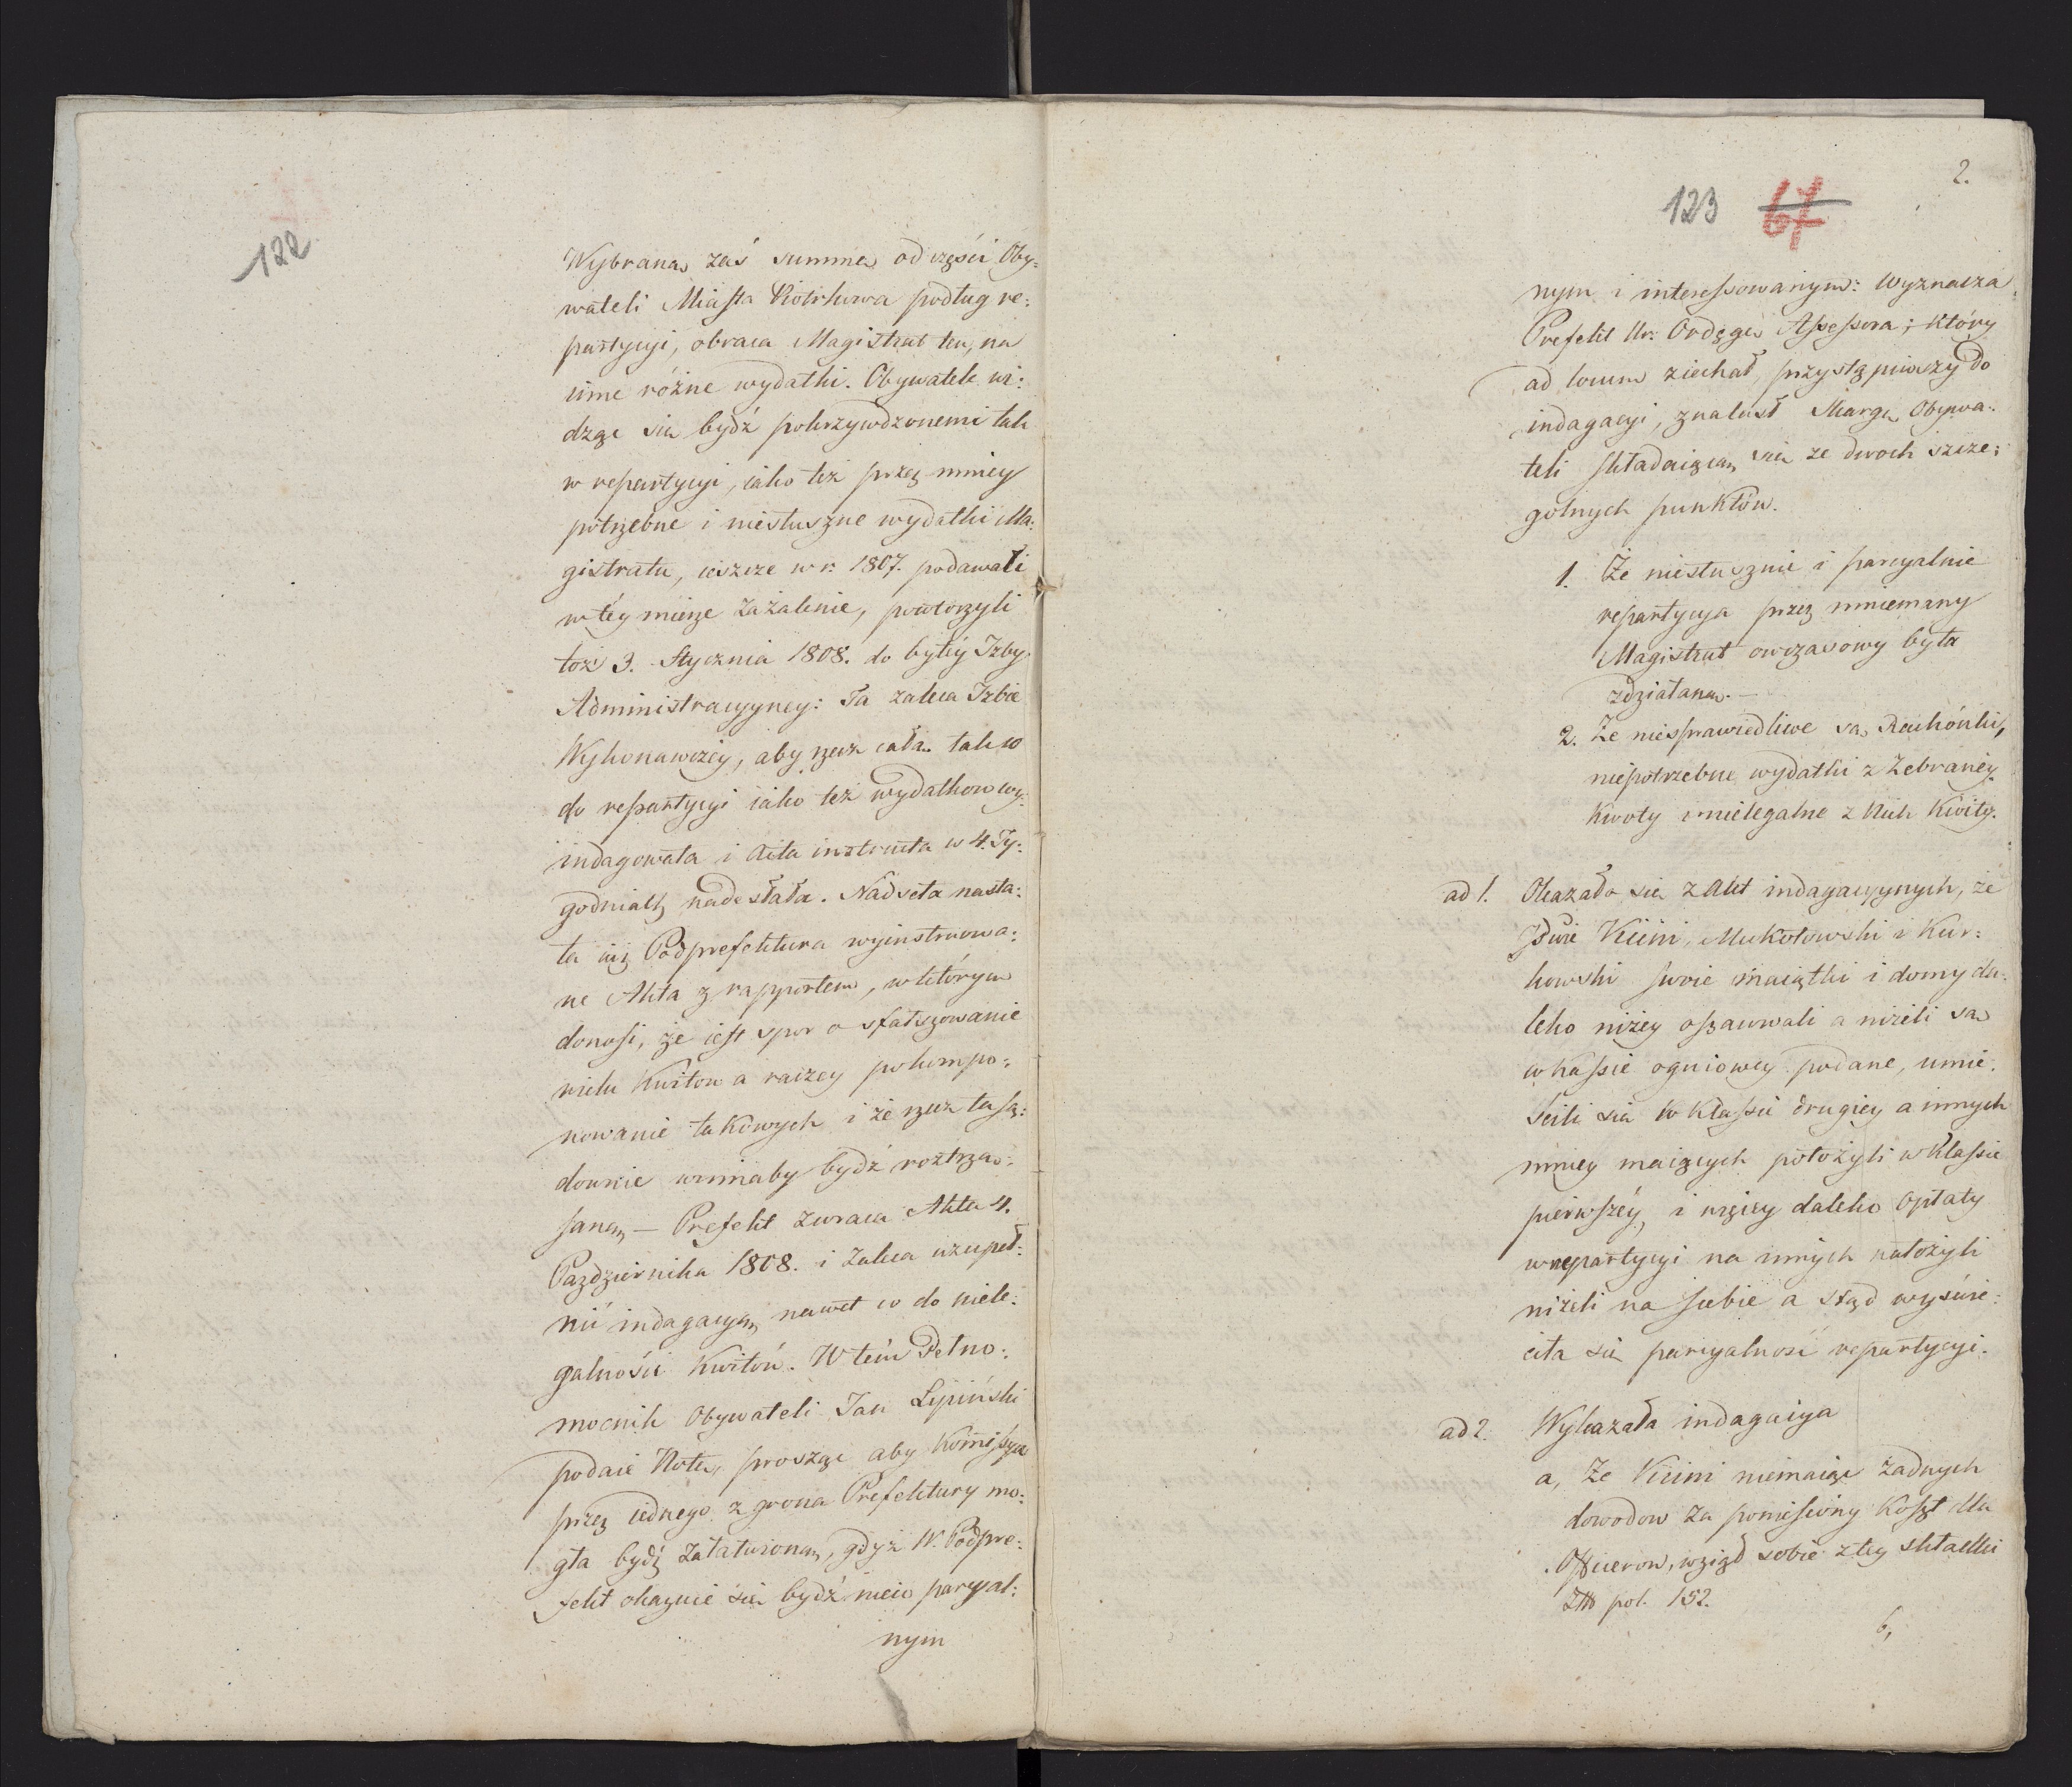 122
Wybrana zaś summa od częśći Oby=
wateli Miasta Piotrkowa podług re=
partycyi, obraca Magistrat ten, na
inne różne wydatki. Obywatele wi=
dząc się bydź pokrzywdzonemi tak
w repartycyi, iako też przez mniey
potrzebne i niesłuszne wydatki Ma=
gistratu, ieszcze w r. 1807. podawali
w téy mierze zażalenie, powtorzyli
toż 3. Stycznia 1808. do byłéy Izby
Administracyyney: Ta zaleca Izbie
Wykonawczéy, aby rzecz całą tak co
do repartycyi iako też wydatkow wy=
indagowała i Acta instructa w 4. Ty=
godniach nadesłała. Nadseła nasta=
ła iuż Podprefektura wyinstruowa=
ne Akta z rapportem, w którym
donosi, że iest spor o sfałszowanie
wielu Kwitow a raczey pokompo=
nowanie takowych i że rzecz ta są=
downie winnaby bydź roztrzą=
sana, — Prefekt zwraca Akta 4.
Pazdziernika 1808. i zaleca uzupeł=
nić indagacyą nawet co do niele=
galnośći Kwitów. W tém Pełno=
mocnik Obywateli Jan Lipiński
podaie Notę, prosząc aby Kommissya
przez iednego z grona Prefektury mo=
gła bydź załatwioną, gdyż W. Podpre=
fekt okazuie się bydź nieco parcyal=
nym
2.
123 67
nym i interessowanym: Wyznacza
Prefekt Ur. Ordęgę Assessora; który
ad locum ziechał, przystąpiwszy do
indagacyi, znalazł Skargę Obywa=
teli składaiącą się ze dwoch szcze=
golnych punktów.
1. Że niesłusznie i parcyalnie
repartycya przez mniemany
Magistrat owczasowy była
zdziałana. —
2. Że niesprawiedliwe są Rachónki,
niepotrzebne wydatki z Zebranéy
Kwoty i nielegalne z Nich Kwity.
ad 1. Okazało się z Akt indagacyynych, że
Dwie Vicini, Mukołowski i Kur=
kowski swoie maiątki i domy da=
leko niżey oszacowali a niżeli są
w Kassie ogniowey podane, umie=
ścili się w Klassie drugiey a innych
mniey maiących położyli w Klassie
pierwszéy, i więcey daleko opłaty
w repartycyi na innych nałożyli
niżeli na siebie a stąd wyświe=
ciła się parcyalność repartycyi.
ad 2. Wykazała indagacya
a, Że Vicini niemaiąc żadnych
dowodow za poniesiony Koszt dla
Officerow, wziął sobie z tey składki
Złł pol. 152.
b,